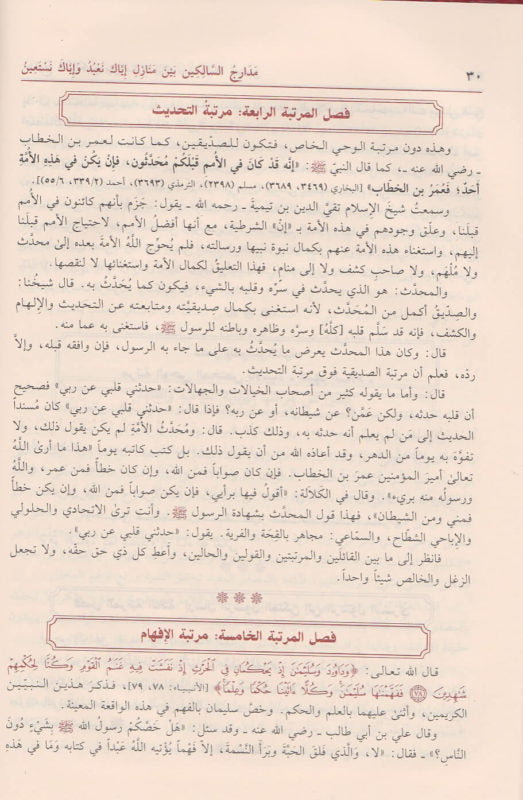 ٣٠
مَدَارِجُ السَّالِكِين بَيْنَ مَنَازِلِ إيّاكَ نَعْبُدُ وَإيّاكَ نَسْتَعِينُ
فصل المرتبة الرابعة: مرتبةُ التحديث
وهذه دون مرتبة الوحي الخاص، فتكون للصدّيقين، كما كانت لعمر بن الخطاب
ـ رضي الله عنه ـ، كما قال النبيّ ﷺ: «إنَّه قَدْ كَانَ في الأُمم قَبْلَكُمْ مُحَدَّثُون، فَإنْ يكُنْ في هَذِهِ الأُمَّةِ
أَحَدٌ؛ فَعُمَرُ بن الخطاب» [البخاري (٣٤٦٩، ٣٦٨٩)، مسلم (٢٣٩٨)، الترمذي (٣٦٩٣)، أحمد (٣٣٩/٢، ٥٥/٦)].
وسمعتُ شيخَ الإسلام تقيَّ الدين بن تيميةَ ـ رحمه الله ـ يقول: جَزَم بأنهم كائنون في الأمم
قبلَنا، وعلّق وجودهم في هذه الأمة بـ «إنْ» الشرطية، مع أنها أفضلُ الأمم، لاحتياج الأمم قبلنا
إليهم، واستغناء هذه الأمة عنهم بكمال نبوة نبيها ورسالته، فلم يُحوِّج اللَّهُ الأمةَ بعده إلى محدَّث
ولا مُلْهَم، ولا صاحبِ كشف ولا إلى منام، فهذا التعليقُ لكمال الأمة واستغنائها لا لنقصها.
والمحدَّث: هو الذي يحدَّث في سرِّه وقلبه بالشيء، فيكون كما يُحَدَّثُ به. قال شيخُنا:
والصدّيقُ أكمل من المُحَدَّث، لأنه استغنى بكمال صِديقيَّته ومتابعته عن التحديث والإلهام
والكشف، فإنه قد سَلّم قلبه [كلَّهُ] وسرَّه وظاهره وباطنه للرسول ﷺ، فاستغنى به عما منه.
قال: وكان هذا المحدَّث يعرض ما يُحدَّثُ به على ما جاء به الرسول، فإن وافقه قبله، وإلاَّ
ردّه، فعلم أن مرتبة الصديقية فوق مرتبة التحديث.
قال: وأما ما يقوله كثير من أصحاب الخيالات والجهالات: «حدثني قلبي عن ربي» فصحيح
أن قلبه حدثه، ولكن عَمَّن؟ عن شيطانه، أو عن ربه؟ فإذا قال: «حدثني قلبي عن ربي» كان مُسنداً
الحديث إلى مَن لم يعلم أنه حدثه به، وذلك كذب. قال: ومُحَدَّثُ الأُمَّةِ لم يكن يقول ذلك، ولا
تفوَّهَ به يوماً من الدهر، وقد أعاذه الله من أن يقول ذلك. بل كتب كاتبه يوماً «هذا ما أرىٰ اللَّهُ
تعالىٰ أميرَ المؤمنين عمرَ بن الخطاب. فإن كان صواباً فمن الله، وإن كان خطأً فمن عمر، واللَّهُ
ورسولُه منه بريء». وقال في الكَلاَلة: «أقولُ فيها برأيي، فإن يكن صواباً فمن الله، وإن يكن خطأً
فمني ومن الشيطان»، فهذا قول المحدَّث بشهادة الرسول ﷺ. وأنت ترىٰ الاتحادي والحلولي
والإباحي الشطّاح، والسمّاعي: مجاهر بالقِحَة والفرية. يقول: «حدثني قلبي عن ربي».
فانظر إلى ما بين القائلَين والمرتبتين والقولين والحالين، وأعطِ كل ذي حق حقّه، ولا تجعل
الزغل والخالص شيئاً واحداً.
***
فصل المرتبة الخامسة: مرتبة الإفهام
قال الله تعالى: ﴿وَدَاوُودَ وَسُلَيْمَٰنَ إِذْ يَحْكُمَانِ فِي ٱلْحَرْثِ إِذْ نَفَشَتْ فِيهِ غَنَمُ ٱلْقَوْمِ وَكُنَّا لِحُكْمِهِمْ
شَٰهِدِينَ ۝٧٨ فَفَهَّمْنَٰهَا سُلَيْمَٰنَ وَكُلًّا ءَاتَيْنَا حُكْمًا وَعِلْمًا﴾ [الأنبياء: ٧٨، ٧٩]، فذكرَ هذَين النبيّين
الكريمين، وأثنىٰ عليهما بالعلم والحكم. وخصّ سليمان بالفهم في هذه الواقعة المعينة.
وقال علي بن أبي طالب ـ رضي الله عنه ـ وقد سئل: «هَل خَصَّكُمْ رسولُ الله ﷺ بِشَيْءٍ دُونَ
النَّاسِ؟» ـ فقال: «لا، وَالَّذي فَلَقَ الحَبَّةَ وبَرَأَ النَّسْمةَ، إلاّ فَهْماً يُؤتيهِ اللَّهُ عَبْداً في كتابه وَمَا في هَذِهِ